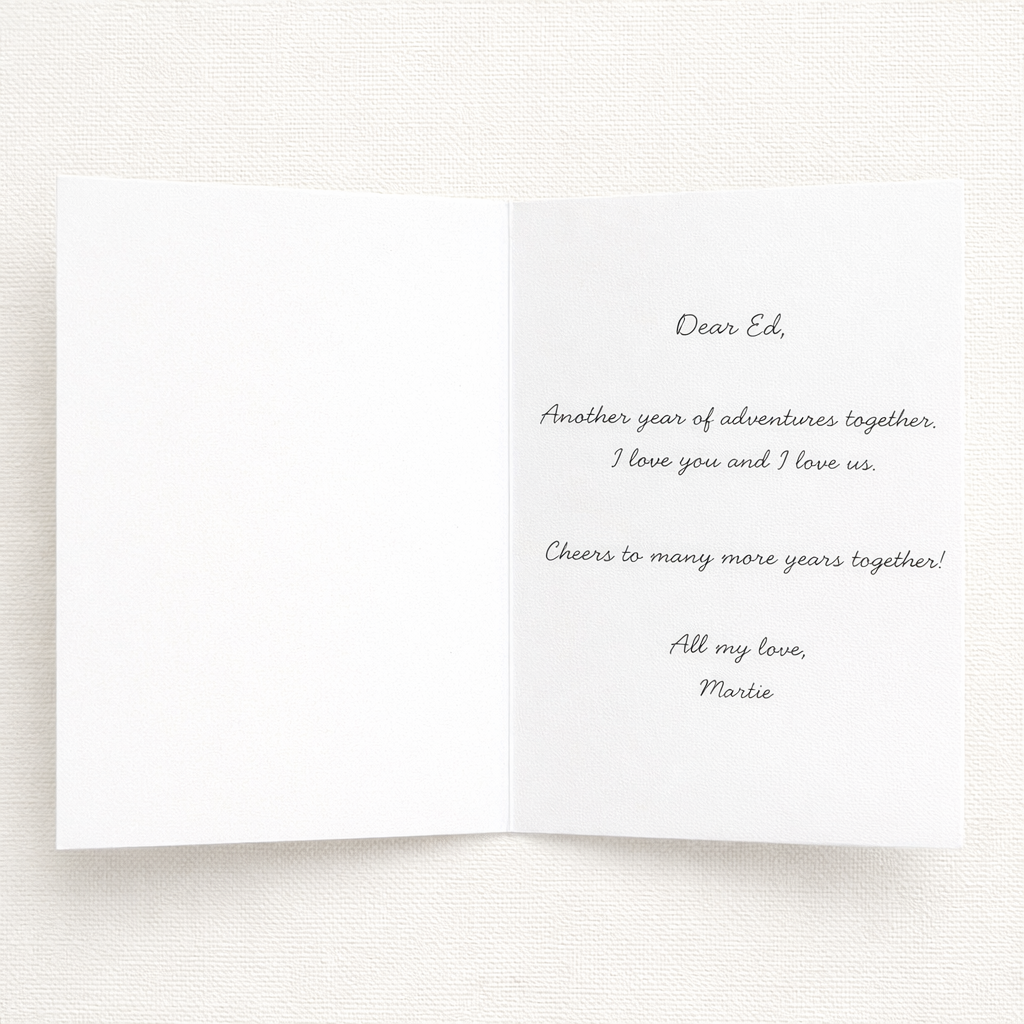 Dear Ed,
Another year of adventures together.
I love you and I love us.
Cheers to many more years together!
All my love,
Martie